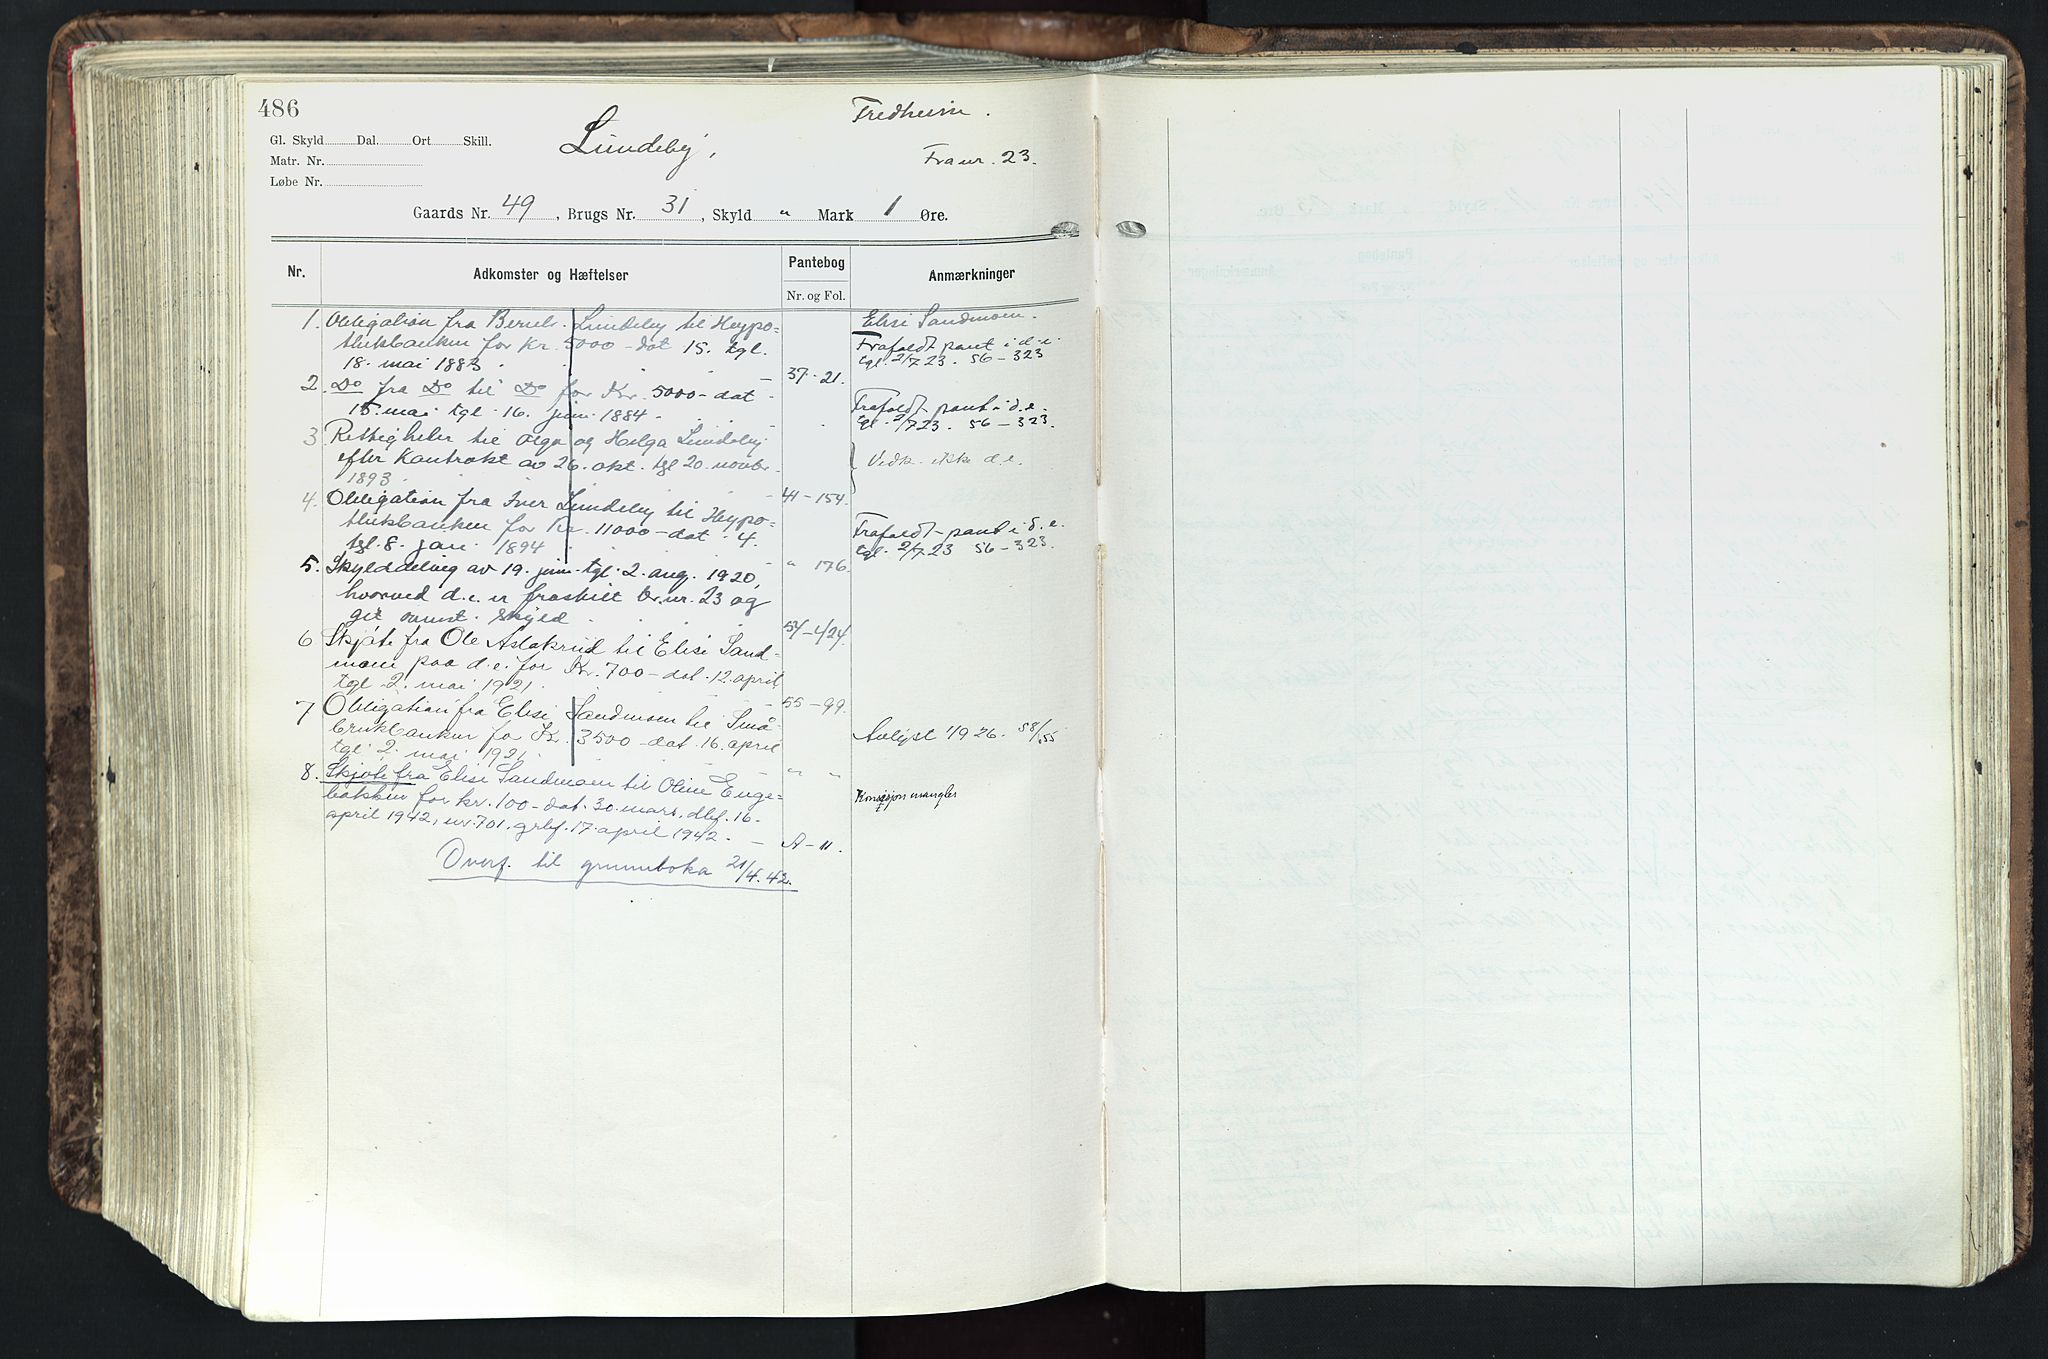 486
Fredheim.
Gl. Skyld Dal. Ort Skill.
Lundeby,
Matr. Nr.
Fra nr. 23.
Løbe Nr.
Gaards Nr. 49, Brugs Nr. 31, Skyld " Mark 1 Øre.
Nr.
Adkomster og Hæftelser
Pantebog
Nr. og Fol.
Anmærkninger
1. Obligation fra Bernh. Lundeby til Hypo=
thekbanken for Kr. 5000 - dat 15. tgl.
18. mai 1883 . . . - 37 - 21.
Elise Sandmoen.
Frafaldt pant i d. e.
tgl. 2/7 23. 56 - 323
2. Do fra Do til Do for Kr. 5000 - dat
15. mai tgl. 16. juni 1884 - . . .
Frafaldt pant i d. e.
tgl. 2/7 23. 56 - 323.
3 Rettigheter til Olga og Helga Lundeby
efter Kontrakt av 26. okt. tgl 20. novbr.
1893 . . . - 41 - 154.
Vedk. ikke d. e.
4. Obligation fra Iver Lundeby til Hypo=
thekbanken for Kr. 11000 - dat. 4.
tgl. 8. jan. 1894 . . - " 176.
Frafaldt - pant i d. e.
tgl. 2/7 23 56 - 323.
5. Skylddeling av 19. juni tgl. 2. aug. 1920,
hvorved d. e. er fraskilt br. nr. 23 og
git ovenst. skyld . . . . 54 - 424.
6 Skjøte fra Ole Aslakrud til Elise Sand=
moen paa d. e. for Kr. 700 - dat. 12. april
tgl. 2. mai 1921. - 55 - 99.
7 Obligation fra Elise Sandmoen til Små=
brukbanken for Kr. 3500 - dat. 16. april
tgl. 2. mai 1921 - " "
Avlyst 1/9 26. 58/55
8. Skjøte fra Elise Sandmoen til Oline Enge=
bakken for kr. 100 - dat. 30. mars, dbf. 16.
april 1942, nr. 701, grbf. 17 april 1942. - A - 11.
Konsesjon mangler
Overf. til grunnboka 21/4. 42.